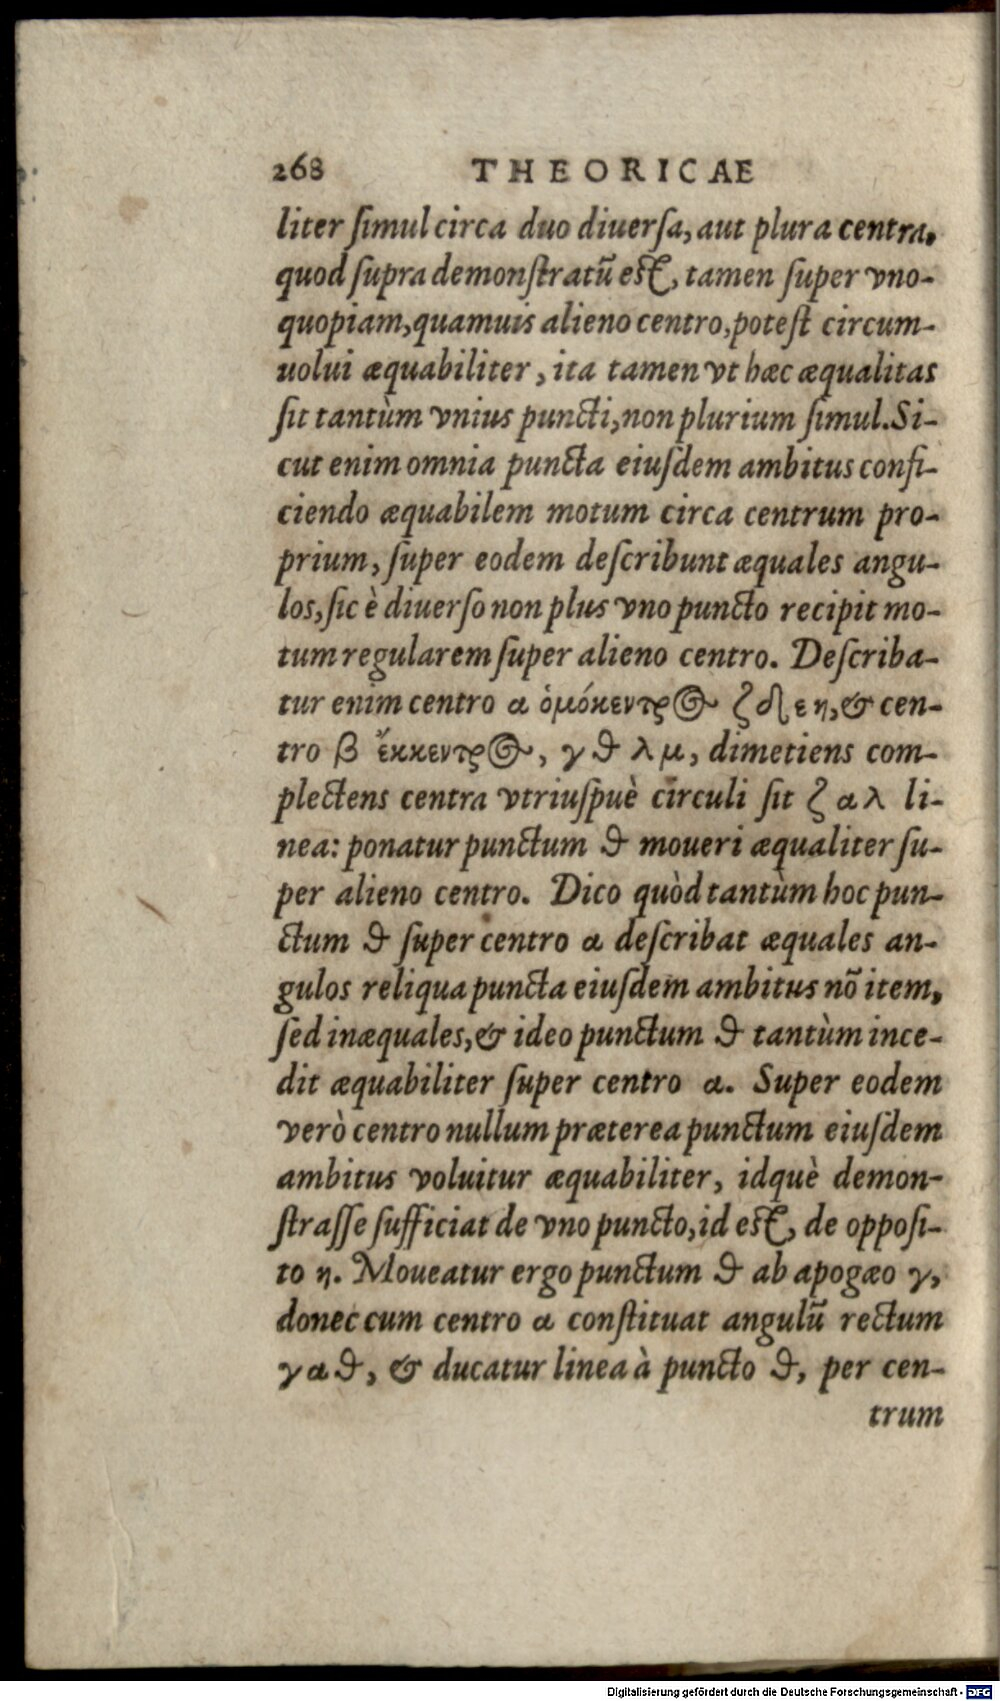 268 THEORICAE
liter ſimul circa duo diuerſa, aut plura centra,
quod ſupra demonſtratũ eſt, tamen ſuper vno-
quopiam, quamuis alieno centro, poteſt circum-
uolui æquabiliter, ita tamen vt hæc æqualitas
ſit tantùm vnius puncti, non plurium ſimul. Si-
cut enim omnia puncta eiuſdem ambitus confi-
ciendo æquabilem motum circa centrum pro-
prium, ſuper eodem deſcribunt æquales angu-
los, ſic è diuerſo non plus vno puncto recipit mo-
tum regularem ſuper alieno centro. Deſcriba-
tur enim centro α ὁμόκεντρος ζ δ ε η, & cen-
tro β ἔκκεντρος, γ θ λ μ, dimetiens com-
plectens centra vtriuſpuè circuli ſit ζ α λ li-
nea: ponatur punctum θ moueri æqualiter ſu-
per alieno centro. Dico quòd tantùm hoc pun-
ctum θ ſuper centro α deſcribat æquales an-
gulos reliqua puncta eiuſdem ambitus nõ item,
ſed inæquales, & ideo punctum θ tantùm ince-
dit æquabiliter ſuper centro α. Super eodem
verò centro nullum præterea punctum eiuſdem
ambitus voluitur æquabiliter, idquè demon-
ſtraſſe ſufficiat de vno puncto, id eſt, de oppoſi-
to η. Moueatur ergo punctum θ ab apogæo γ,
donec cum centro α conſtituat angulũ rectum
γ α θ, & ducatur linea à puncto θ, per cen-
trum
Digitalisierung gefördert durch die Deutsche Forschungsgemeinschaft - DFG